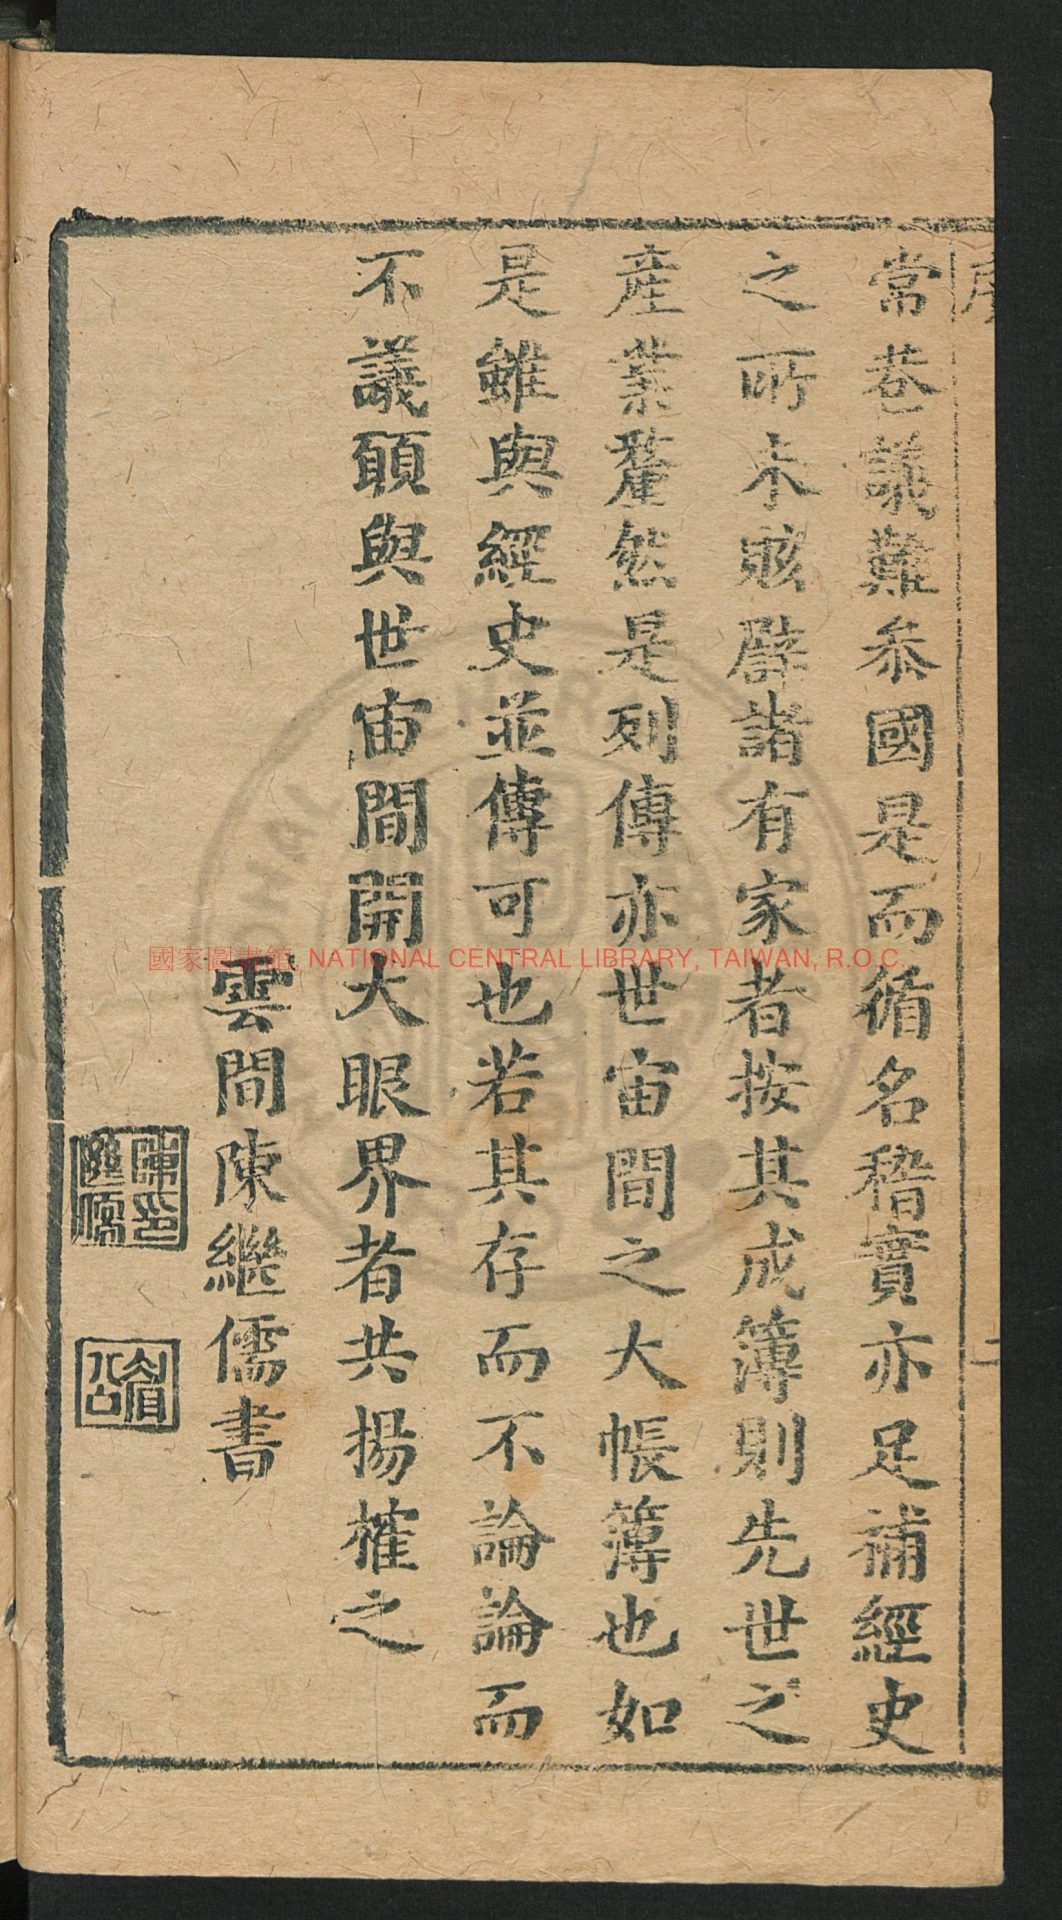 常巷議難叅國是而循名稽實亦足補經史
之所未賅譬諸有家者按其成簿則先世之
產業釐然是列傳亦世宙間之大帳簿也如
是雖與經史並傳可也若其存而不論論而
不議願與世宙間開大眼界者共揚榷之
雲間陳繼儒書
陳印繼儒
眉公
國家圖書館, NATIONAL CENTRAL LIBRARY, TAIWAN, R.O.C.